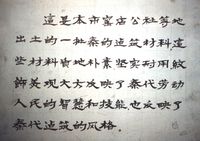 這是本市窑店公社等地
出土的一批秦的建筑材料,這
些材料質地朴素坚实耐用紋
飾美观大方反映了秦代劳动
人民的智慧和技能也反映了
秦代建筑的风格。